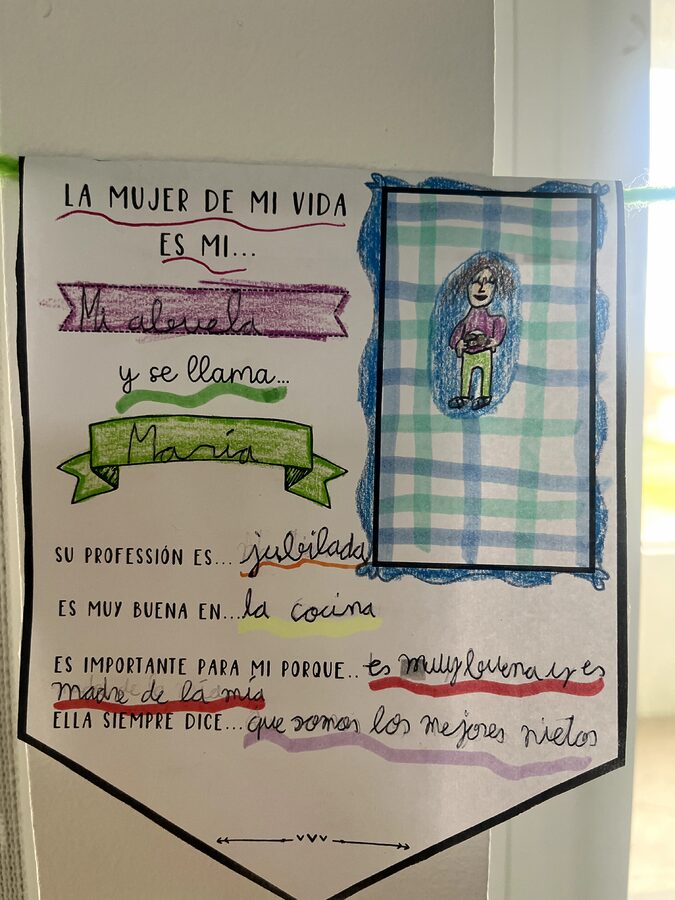 LA MUJER DE MI VIDA
ES MI...
Mi abuela
y se llama...
María
SU PROFESSIÓN ES... jubilada
ES MUY BUENA EN... la cocina
ES IMPORTANTE PARA MI PORQUE.. es muy buena y es
madre de la mía
ELLA SIEMPRE DICE... que somos los mejores nietos